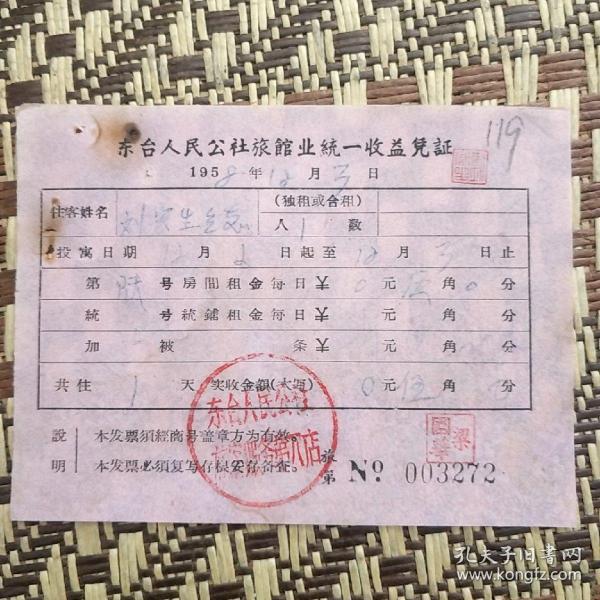 东台人民公社旅館业統一收益凭証
119
1958年12月3日
住客姓名
(独租或合租)
人 1 数
投寓日期12月2日起至12月3日止
第 号房間租金每日¥0元伍角0分
統 号統鋪租金每日¥ 元 角 分
加 被 条¥ 元 角 分
共住 1 天 实收金額(大写) 0元伍角 分
説明
本发票須經商号盖章方为有效。
本发票必須复写存根妥存备查。
东台人民公社
店
梁國華
旅第 No. 003272
孔夫子旧書网
www.kongfz.com